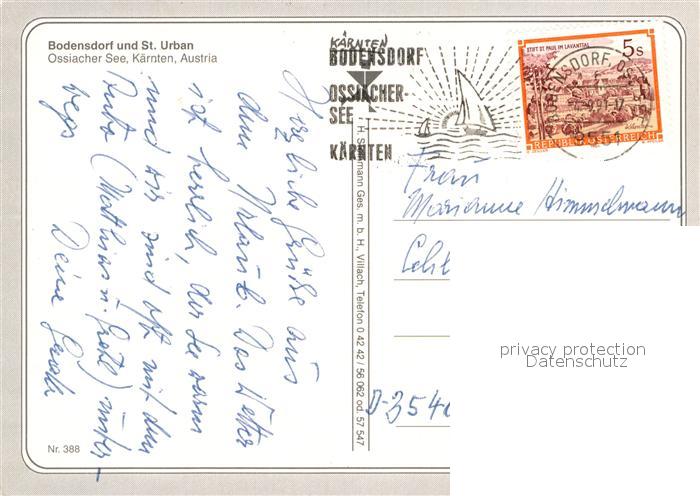 Bodensdorf und St. Urban
Ossiacher See, Kärnten, Austria
Herzliche Grüße aus
dem Urlaub. Das Wetter
ist herrlich, der See warm
und wir sind oft mit dem
(Mathias u. ) unter-
wegs
Deine
Nr. 388
Ges. m. b. H., Villach, Telefon 0 42 42 / 56 062 od. 57 547
KÄRNTEN
BODENSDORF
OSSIACHER-
SEE
KÄRNTEN
STIFT ST. PAUL IM LAVANTTAL
5s
REPUBLIK ÖSTERREICH
Frau
Marianne
D-354
privacy protection
Datenschutz